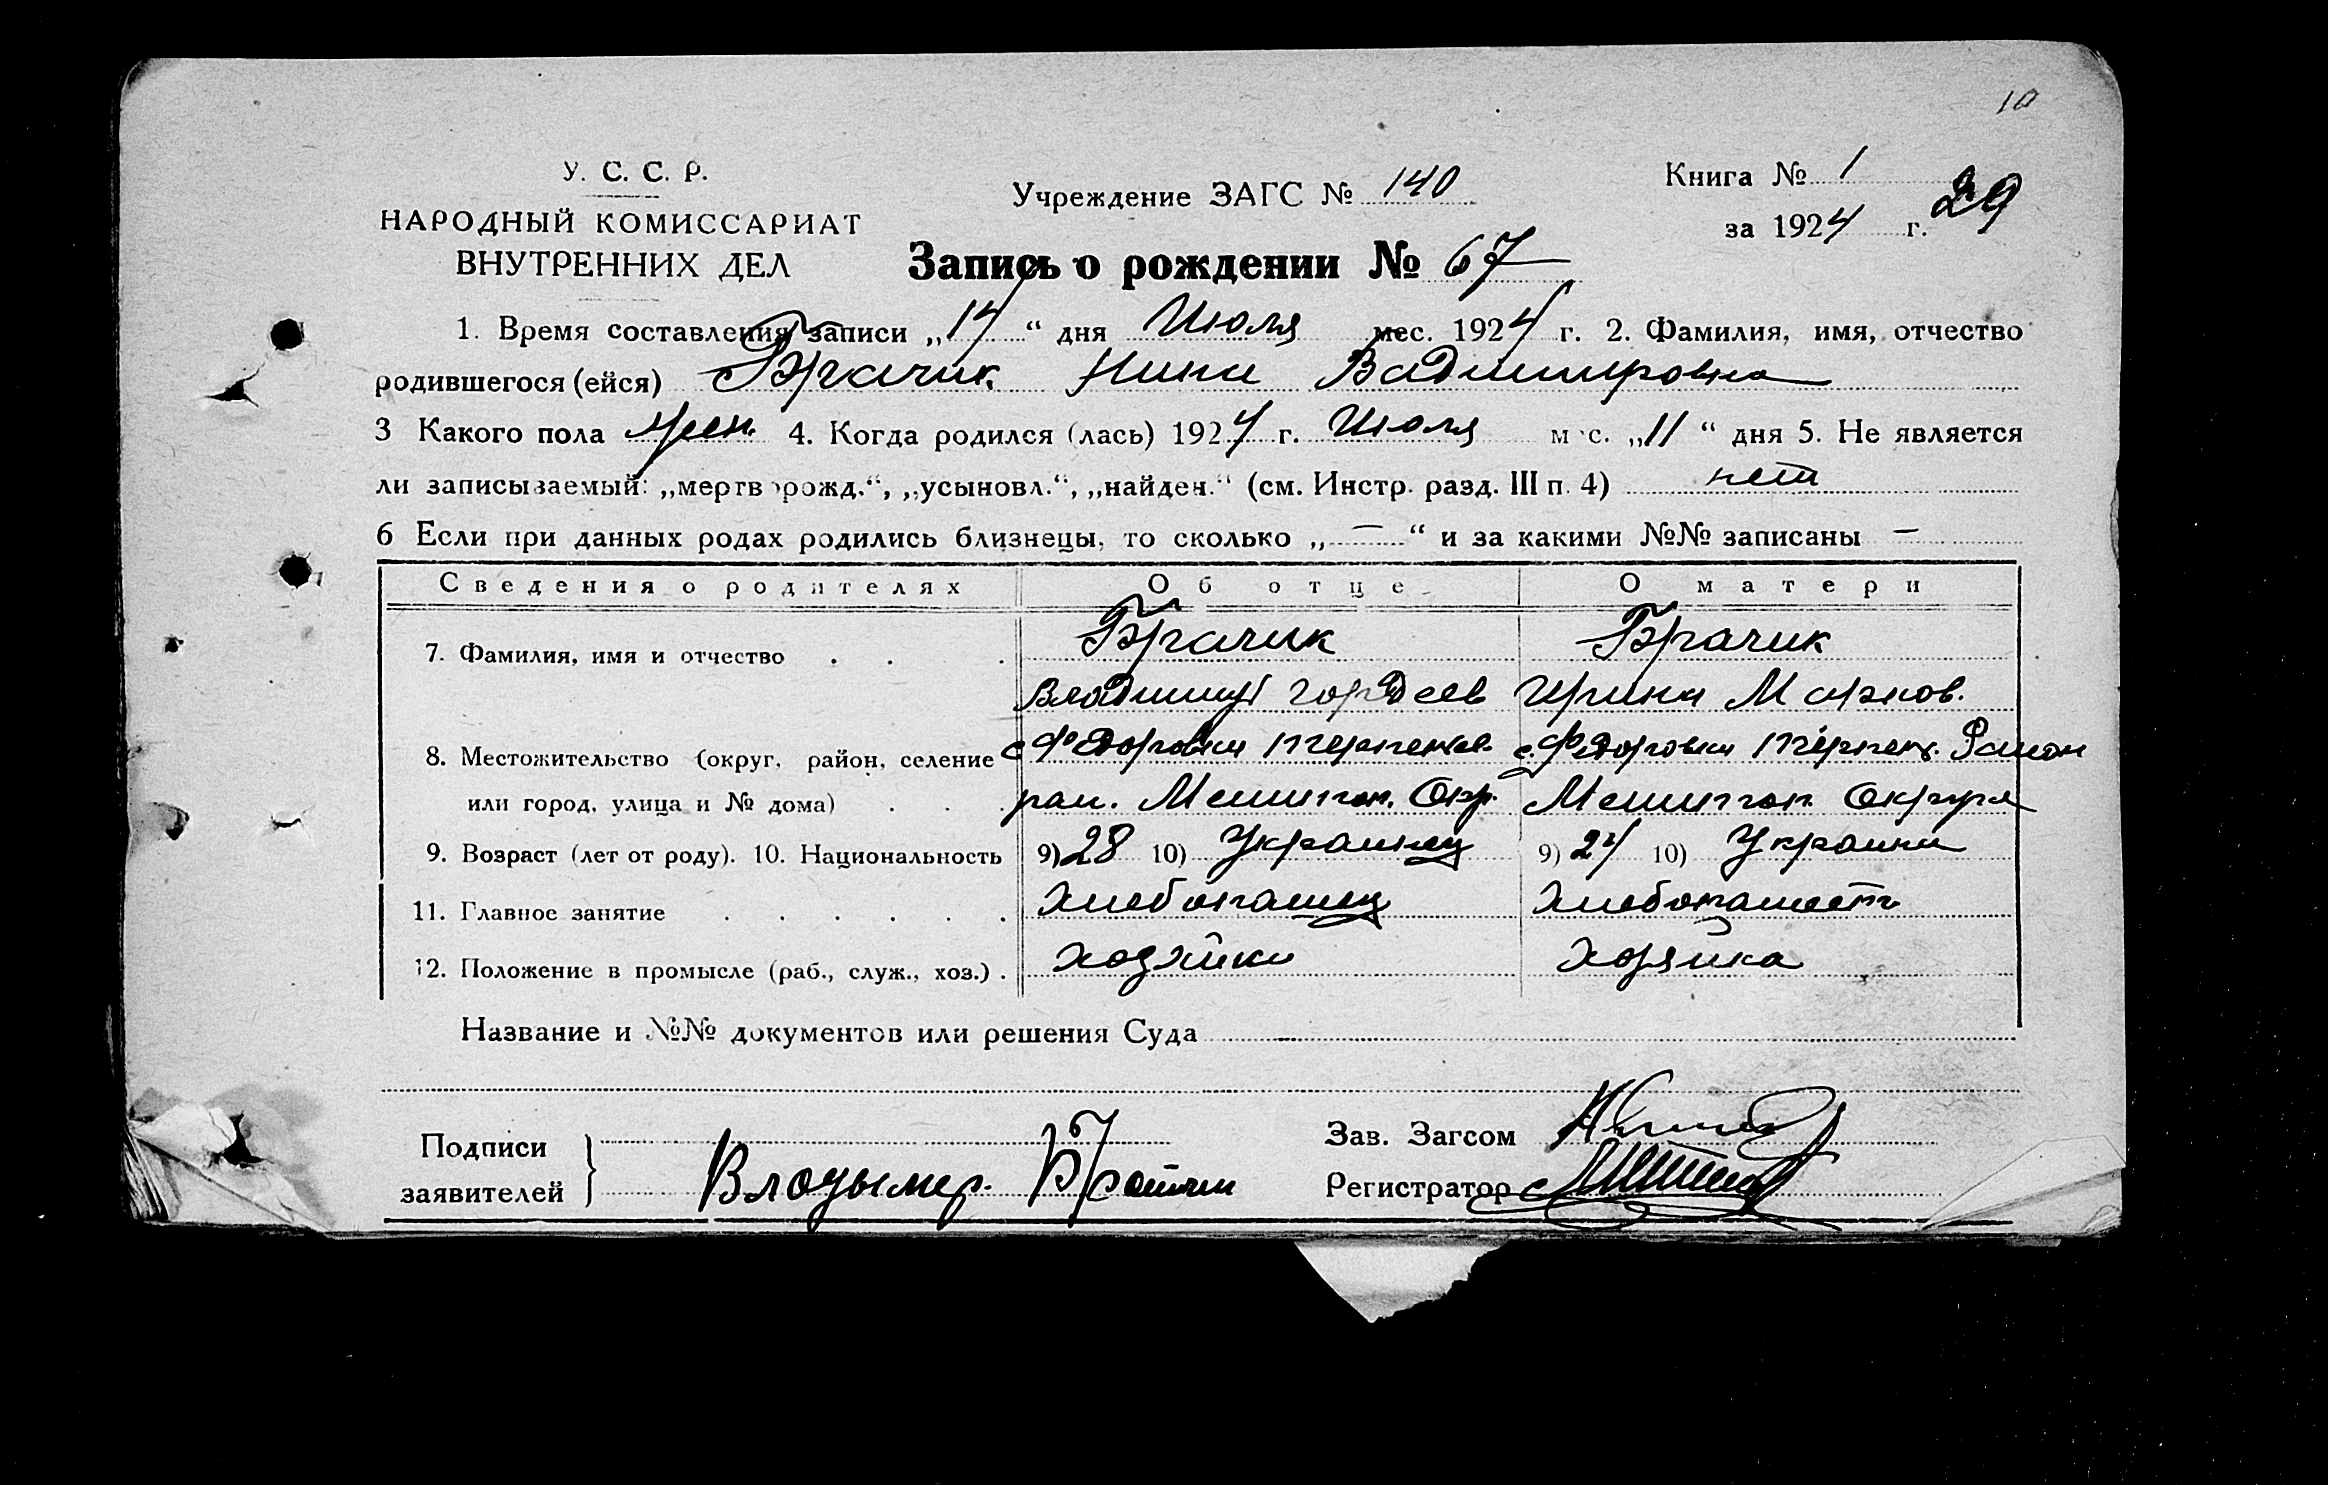 10
У. С. С. Р.
НАРОДНЫЙ КОМИССАРИАТ
ВНУТРЕННИХ ДЕЛ
Учреждение ЗАГС № 140
Книга № 1
за 1924 г. 29
Запись о рождении № 67
1. Время составления записи „14“ дня Июля мес. 1924 г. 2. Фамилия, имя, отчество
родившегося (ейся) Брачик Нина Вадимировна
3 Какого пола жен. 4. Когда родился (лась) 1924 г. Июля мес. „11“ дня 5. Не является
ли записываемый: „мертворожд.“, „усыновл.“, „найден.“ (см. Инстр. разд. III п. 4) нет
6 Если при данных родах родились близнецы, то сколько „—“ и за какими №№ записаны —
Сведения о родителях Об отце О матери
7. Фамилия, имя и отчество Брачик Брачик
Владимир Гордеев Ирина Марков.
8. Местожительство (округ, район, селение с. Федоровки с. Федоровки Район
или город, улица и № дома) рай. Мелитоп. Окр. Мелитоп. Округа
9. Возраст (лет от роду). 10. Национальность 9) 28 10) Украинец 9) 24 10) Украинк
11. Главное занятие Хлебопашец Хлебопашест
12. Положение в промысле (раб., служ., хоз.) хозяйка
Название и №№ документов или решения Суда
Подписи
заявителей Владымер.
Зав. Загсом
Регистратор